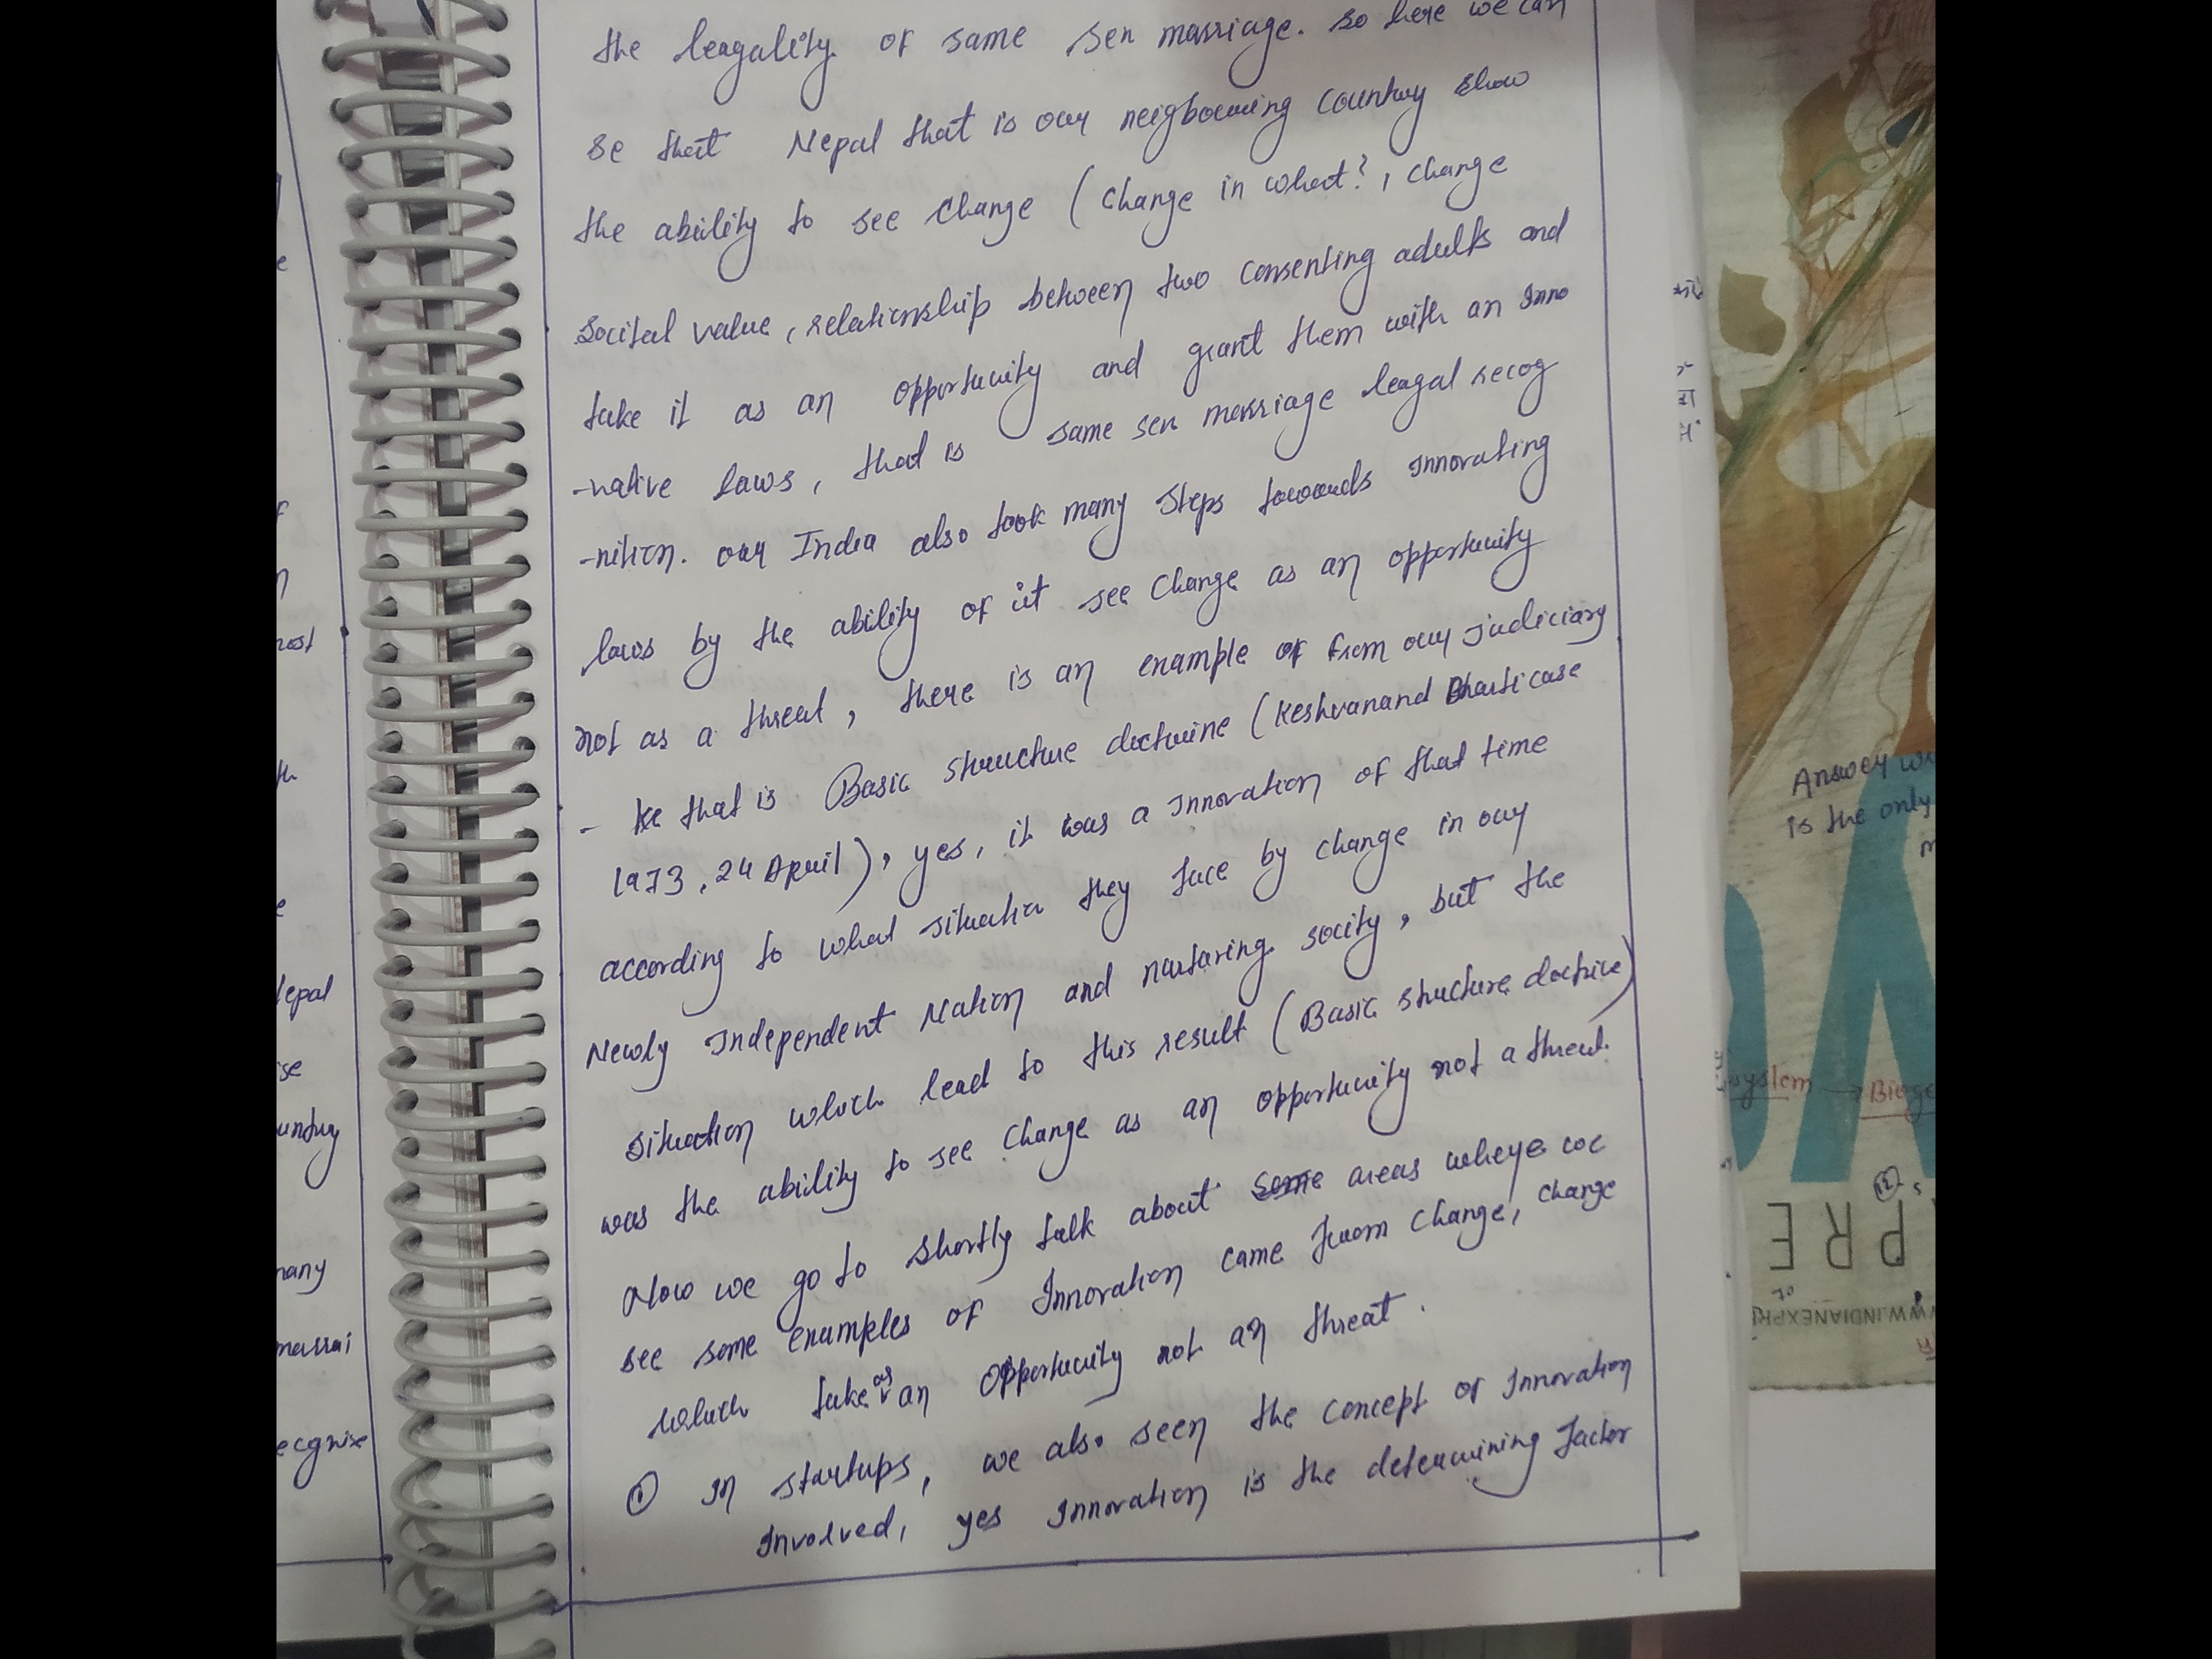 the leagality of same sex marriage. so here we can
se that Nepal that is our neigbouring country show
the ability to see change ( change in what?, change
socital value, relationship between two consenting adults and
take it as an opportunity and grant them with an Inno
-vative laws, that is same sex marriage leagal recog
-nition. our India also took many steps towards innovating
laws by the ability of it see change as an opportunity
not as a threat, there is an example of from our judiciary
- ke that is Basic structure doctrine ( Keshvanand Bharti case
1973, 24 April), yes, it was a innovation of that time
according to what situation they face by change in our
Newly Independent Nation and nurturing socity, but the
situation which lead to this result (Basic structure doctrine)
was the ability to see change as an opportunity not a threat.
Now we go to shortly talk about some areas where we
see some examples of Innovation came from change, change
which take as an opportunity not an threat.
① In startups, we also seen the concept of innovation
involved, yes innovation is the determining factor
e
f
n
nost
th
e
Nepal
se
untry
many
marrai
ecognise
Answer
is the only
system → Bioge
PRE
WWW.INDIANEXPR